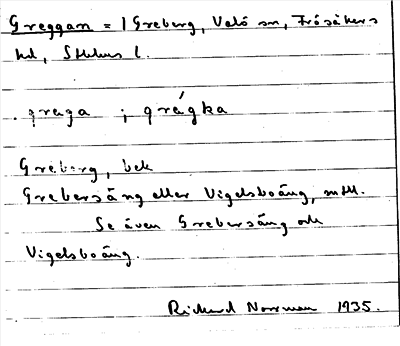 Greggan = / Greberg, Valö sn, Frösåkers
hd, Sthlms l.
graga ; grágka
Greberg, bek
Grebersäng eller Vigelsboäng, mtl.
Se även Grebersäng och
Vigelsboäng.
Rickard Norrman 1935.